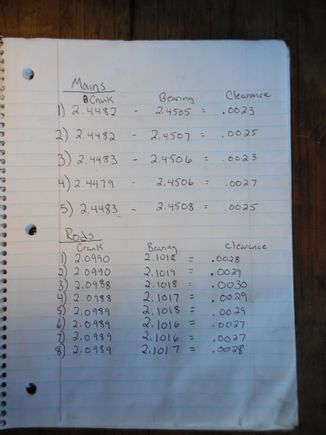 Mains
Crank Bearing Clearance
1) 2.4482 - 2.4505 = .0023
2) 2.4482 - 2.4507 = .0025
3) 2.4483 - 2.4506 = .0023
4) 2.4479 - 2.4506 = .0027
5) 2.4483 - 2.4508 = .0025
Rods
Crank Bearing Clearance
1) 2.0990 2.1018 = .0028
2) 2.0990 2.1019 = .0029
3) 2.0988 2.1018 = .0030
4) 2.0988 2.1017 = .0029
5) 2.0989 2.1018 = .0029
6) 2.0989 2.1016 = .0027
7) 2.0989 2.1016 = .0027
8) 2.0989 2.1017 = .0028